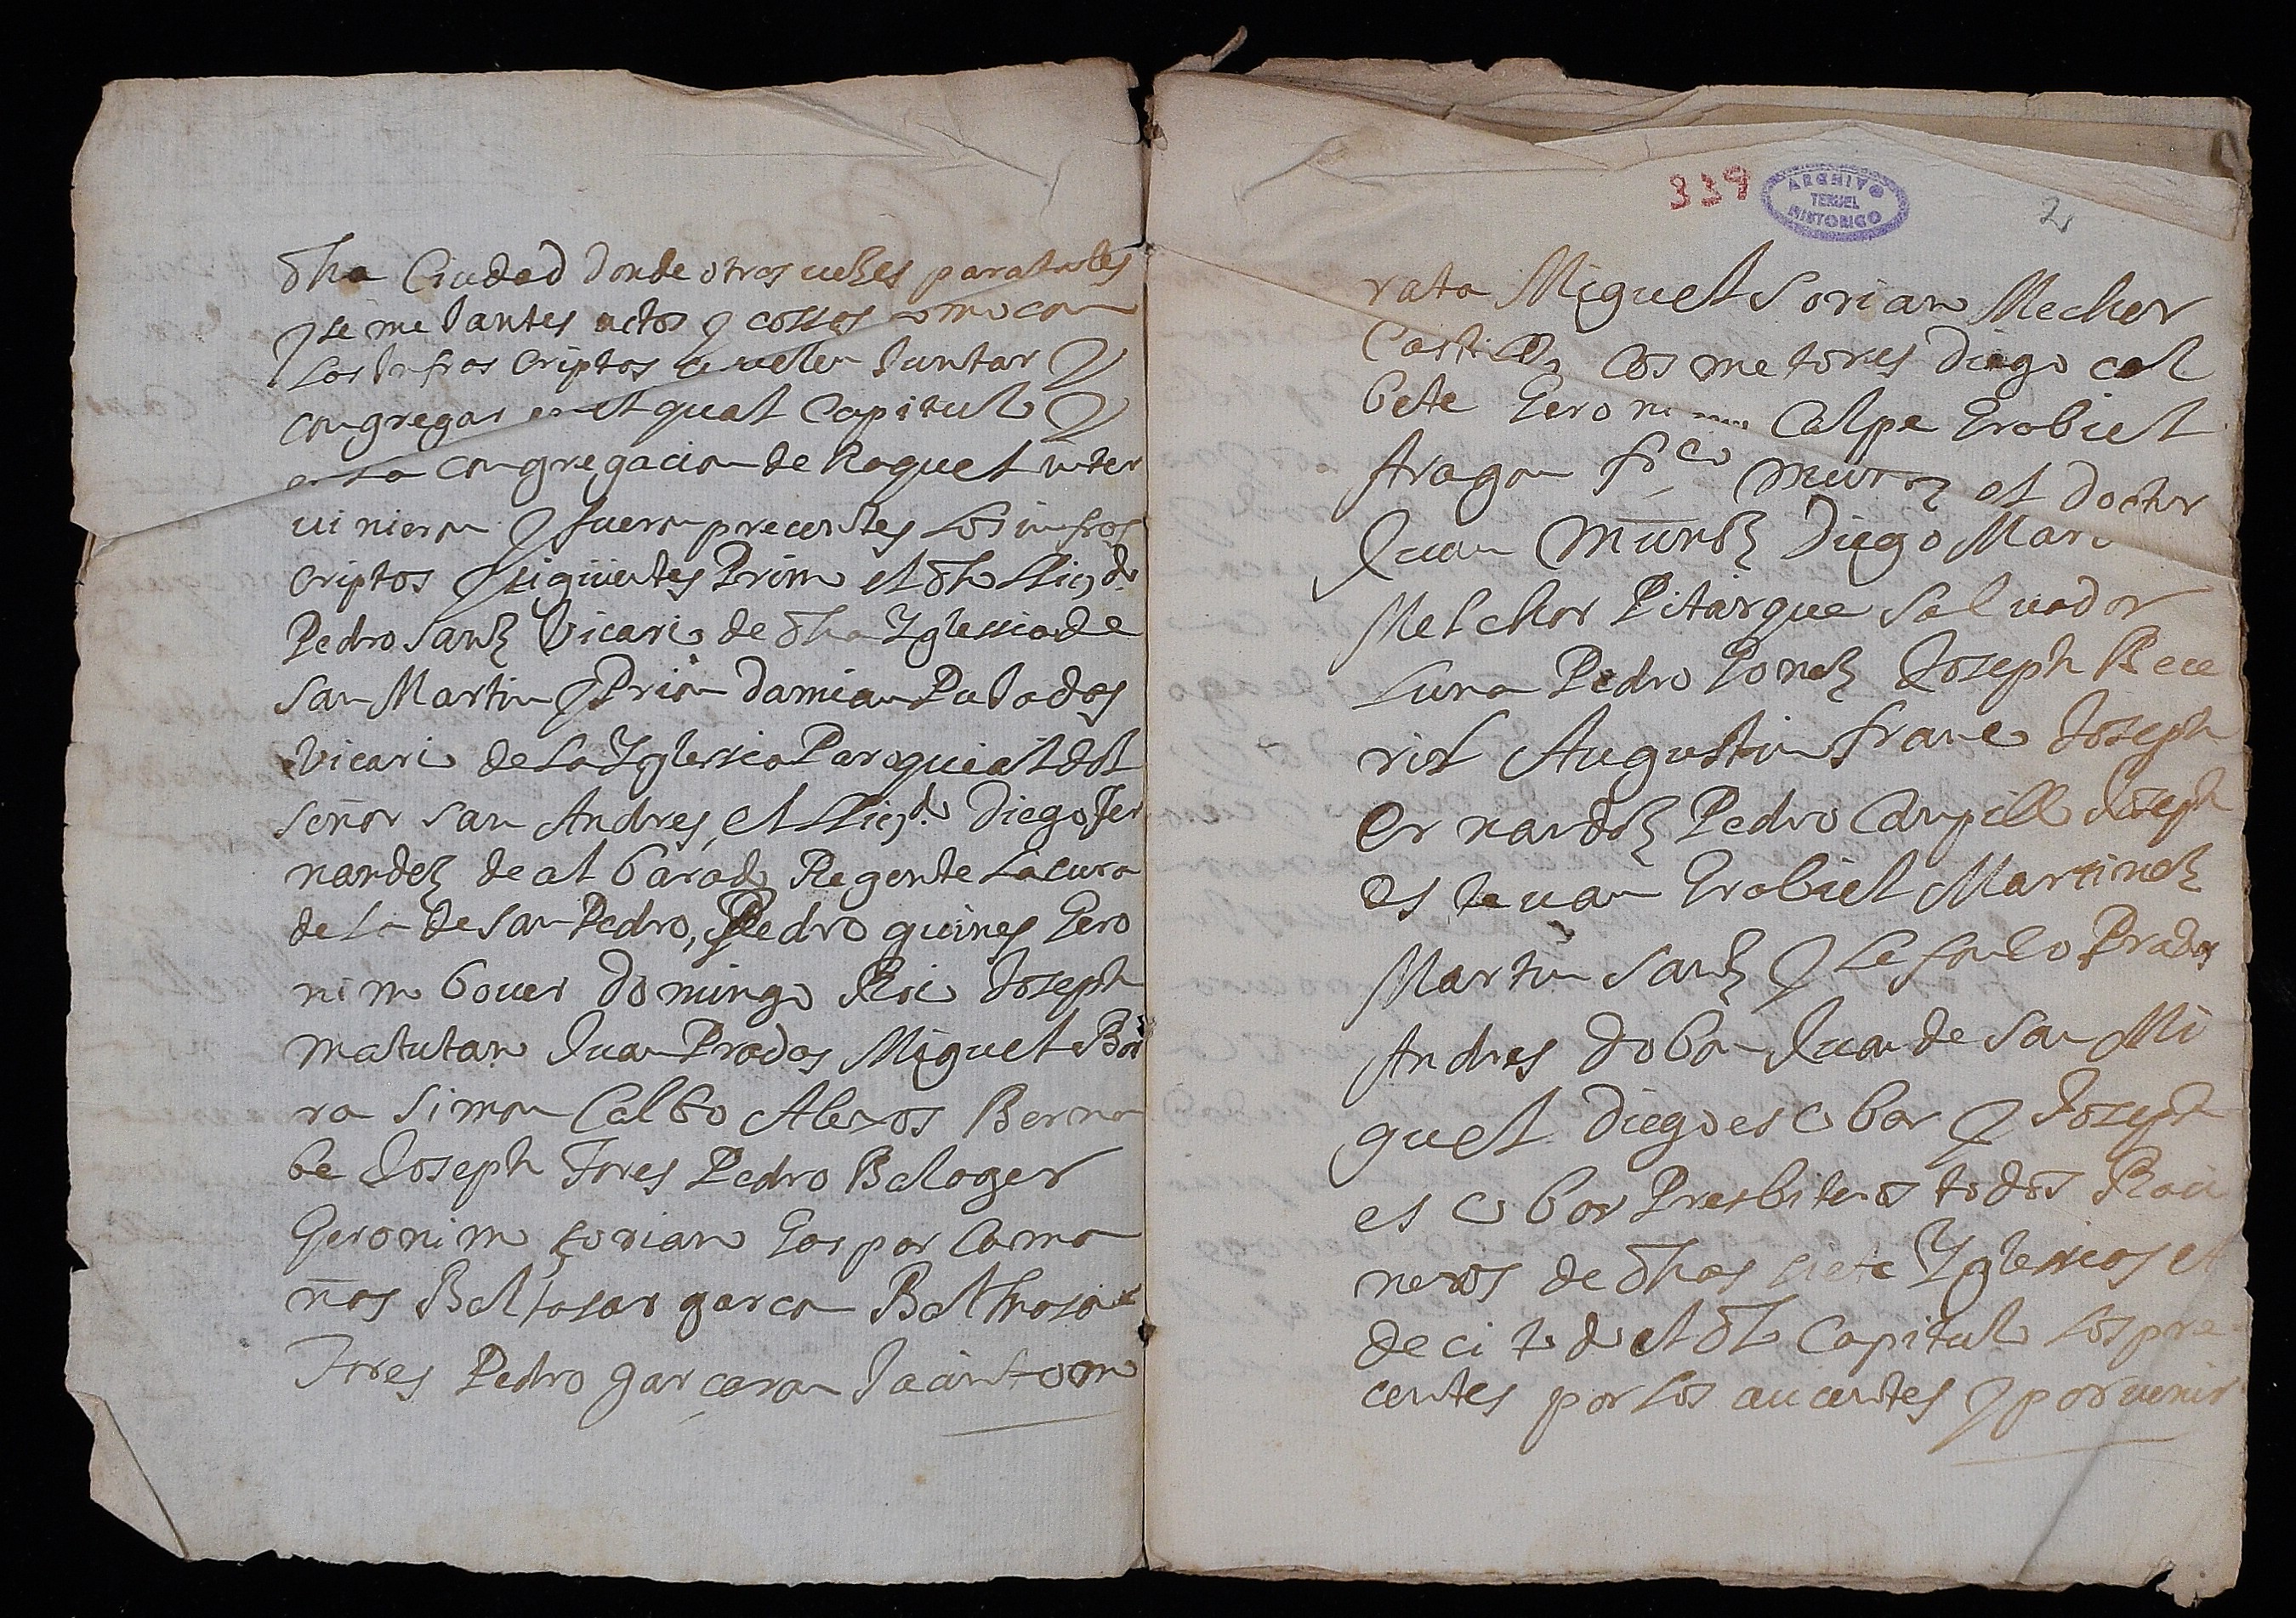 dha Ciudad donde otras uezes para tales
y semejantes actos y cossas como con
los infros criptos se uelen juntar y
congregar en el qual Capitulo y
en la congregacion de Raquel inter
uinieron y fueron precentes los infros
criptos y siguientes Prim el dho Llicdo
Pedro sanz Vicario de dha Yglessia de
san Martin y Prior damian Palados
Vicario de la Yglessia Paroquial del
señor san Andres, el Llicdo Diego Fer
nandez de al barado Regente la cura
de la de san Pedro, Pedro guines Gero
nimo bouer domingo Ric Joseph
matutano Juan Prados Miguel Bor
ra simon Calbo Alexos Berna
be Joseph Fores Pedro Balager
Geronimo soriano Gaspar Cama
ñas Baltasar garcon Balthasar
Fores Pedro garçaran Jacinto m
339
ARCHIVO
TERUEL
HISTORICO
2
rata Miguel Soriano Mechor
Castillo Cosme tores Diego cal
bete Geronimo Calpe Grabiel
Aragon frco Munoz el doctor
Juan Munoz Diego Mari
Melchor Pitarque saluador
Luna Pedro Ponz Joseph Bece
ril Augustin franco Joseph
Ernandez Pedro Canpillo Joseph
esteuan Grabiel Martinez
Martin sanz y Prados
Andres dobon Juan de san Mi
guel Diego escobar y Joseph
escobar Presbiteros todos Racio
neros de dhas siete Yglessias et
de ci todo el dho Capitulo los pre
centes por los aucentes y por uenir